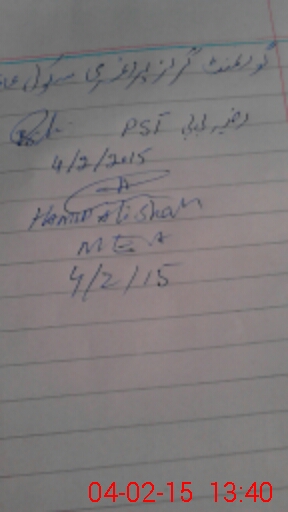 گورنمنٹ گرلز پرائمری سکول
PST بی بی
4/2/2015
Alishah
MEA
4/2/15
04-02-15 13:40